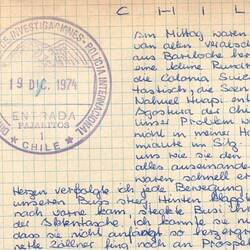 C H I L
DE INVESTIGACIONES - POLICIA INTERNACIONAL
19 DIC. 1974
ENTRADA
PAJARITOS
CHILE
Am Mittag waren
von allen verabsch
aus Bariloche her
eine kleine Rund
die Colonia Suiz
tastisch, die Seen
Nahuel Huapi. ent
Agostura der Ch
unser Problem w
nicht in meiner H
im Sitz.
uns wie sie den
alles auseinande
waren schnell er
Herzen verfolgte ich jede Bewegung
unseren Bugs stieg. Hinten klappte
nach vorne kam, stieg Busi ihr
der Seitentasche, ich kannte
dass sie nicht anfängt so herzer
Zöllner fing noch an